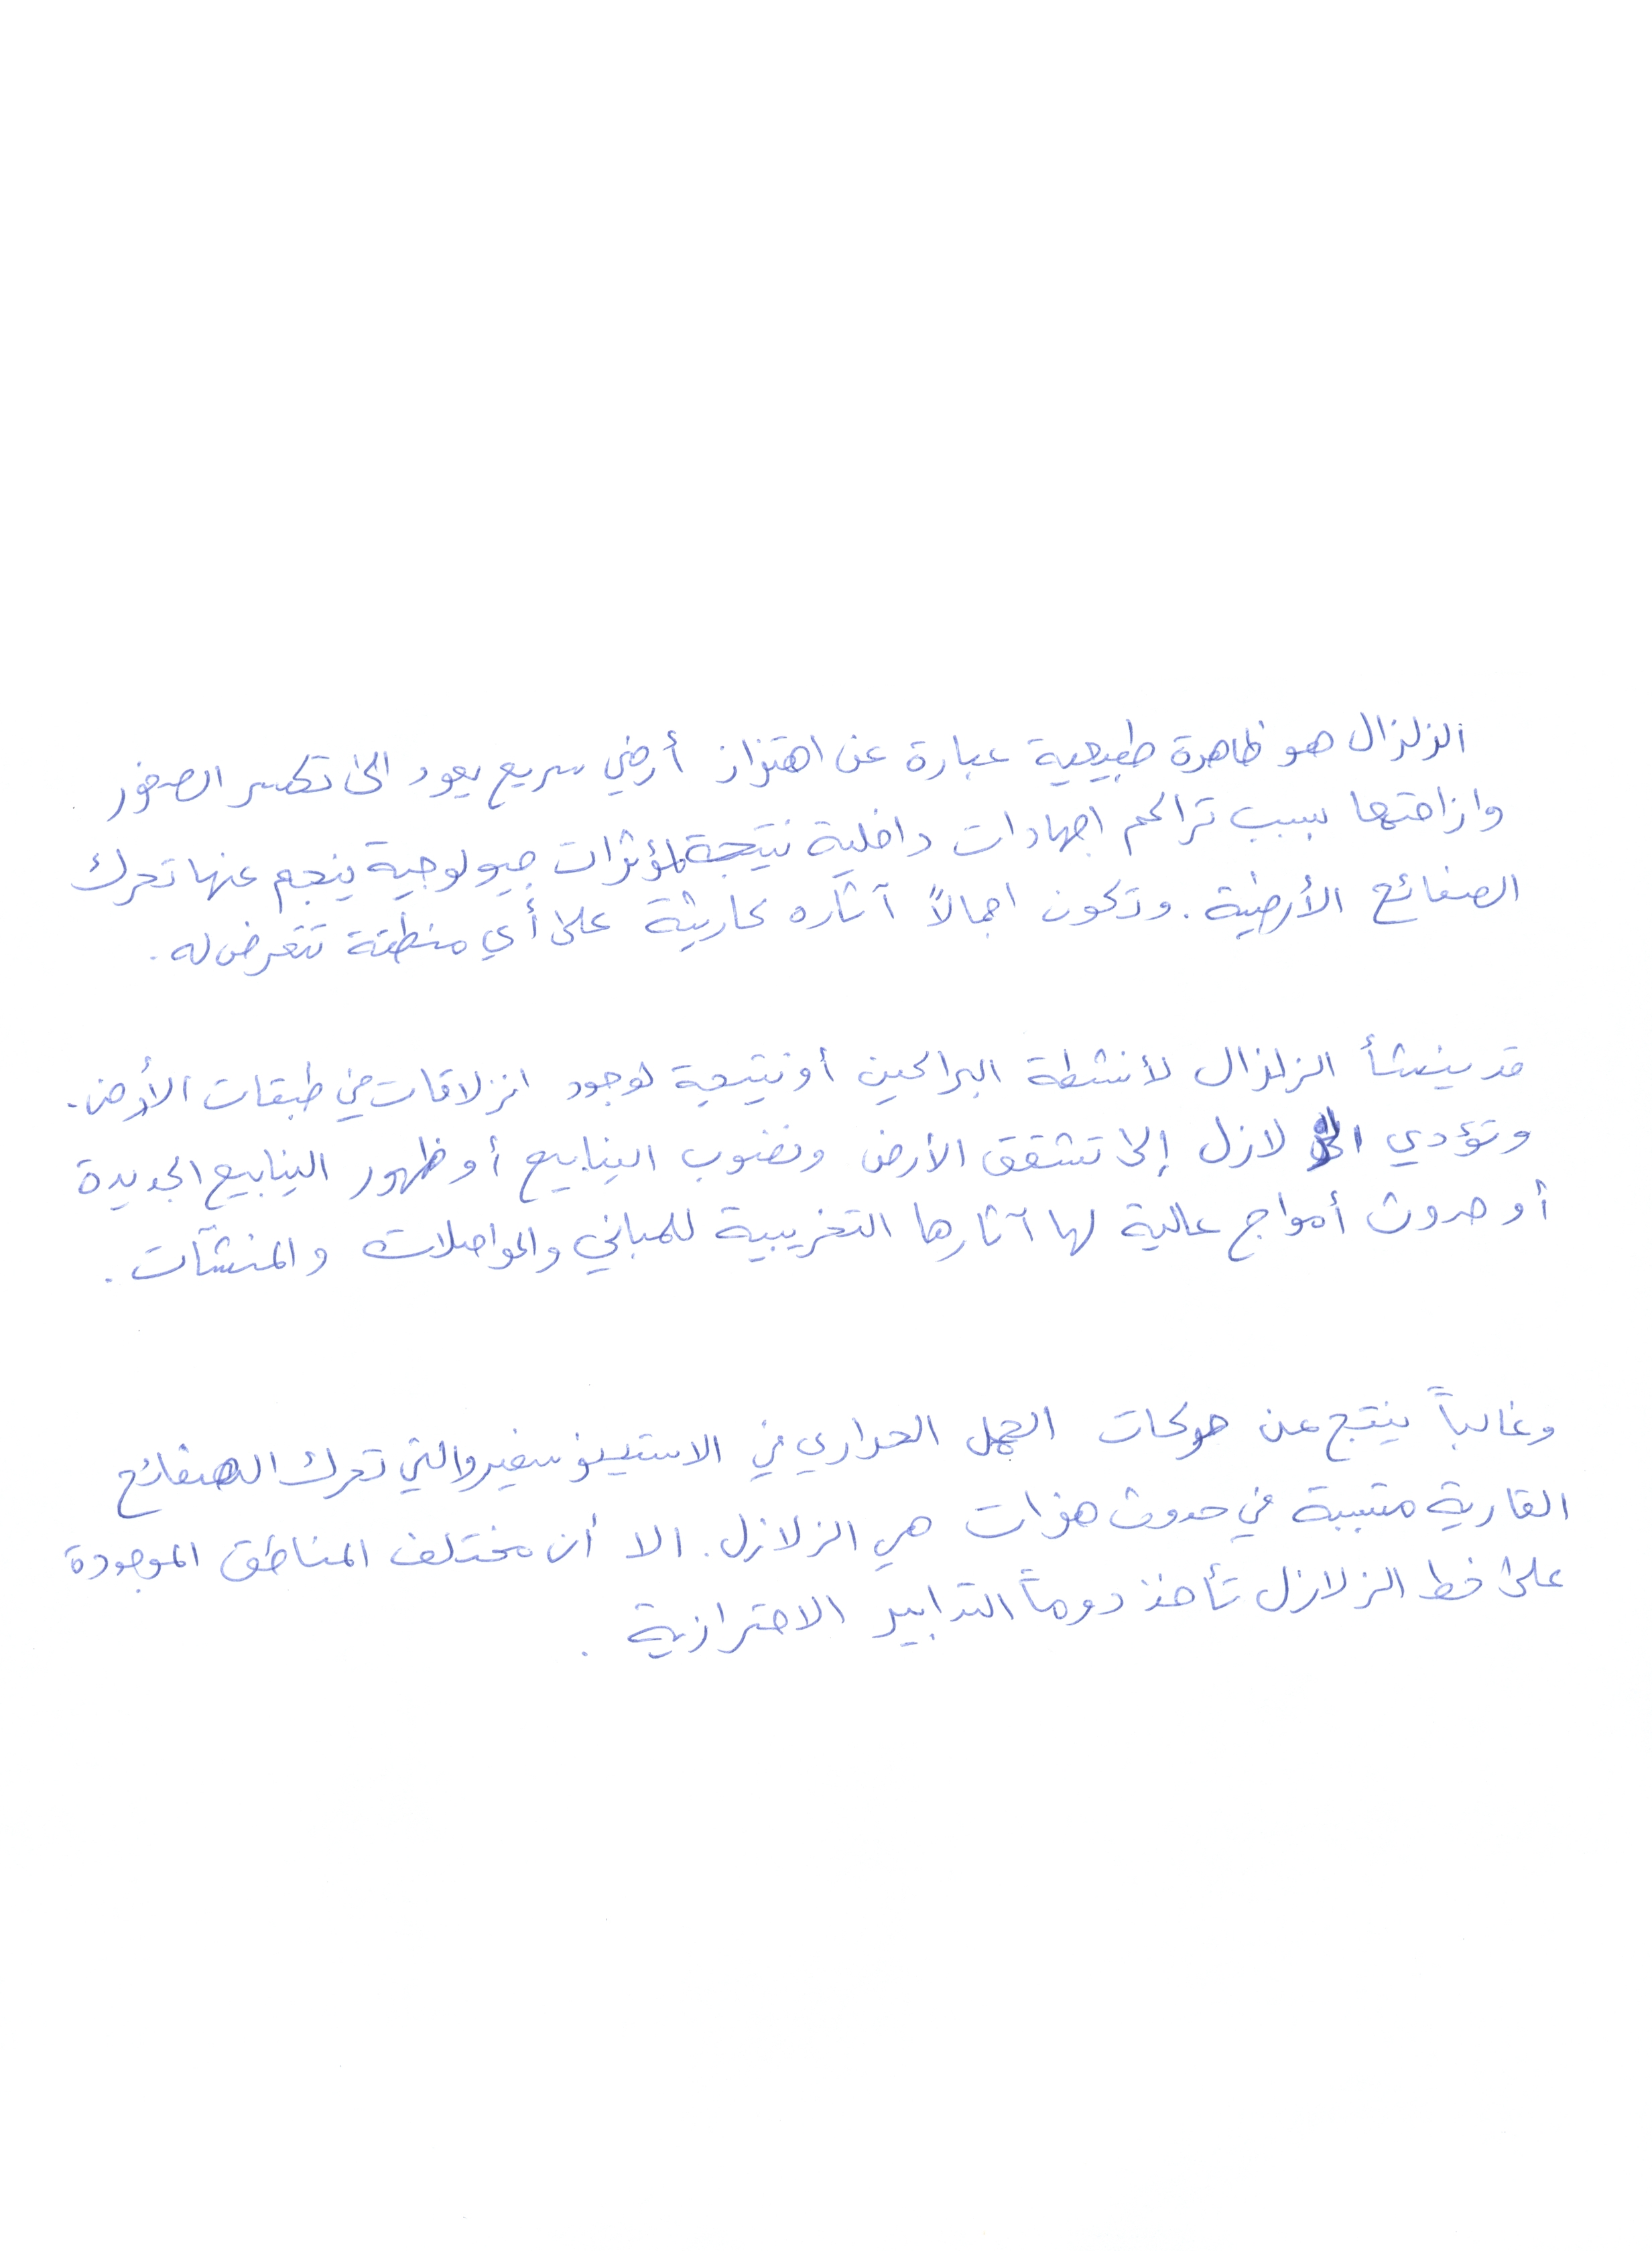 الزلزال هو ظاهرة طبيعية عبارة عن اهتزاز أرضي سريع يعود الى تكسر الصخور
وازاحتها بسبب تراكم اجهادات داخلية نتيجة لمؤثرات جيولوجية ينجم عنها تحرك
الصفائح الأرضية. وتكون اجمالاً آثاره كارثية على أي منطقة تتعرض له.
قد ينشأ الزلزال لأنشطة البراكين أو نتيجة لوجود انزلاقات في طبقات الأرض.
وتؤدي الزلازل إلى تشقق الأرض ونضوب الينابيع أو ظهور الينابيع الجديدة
أو حدوث أمواج عالية لها آثارها التخريبية للمباني والمواصلات والمنشآت.
وغالباً ينتج عن حركات الحمل الحراري في الاستينوسفير والتي تحرك الصفائح
القارية متسببة في حدوث هزات هي الزلازل. الا أن مختلف المناطق الموجودة
على خط الزلازل تأخذ دوماً التدابير الاحترازية.